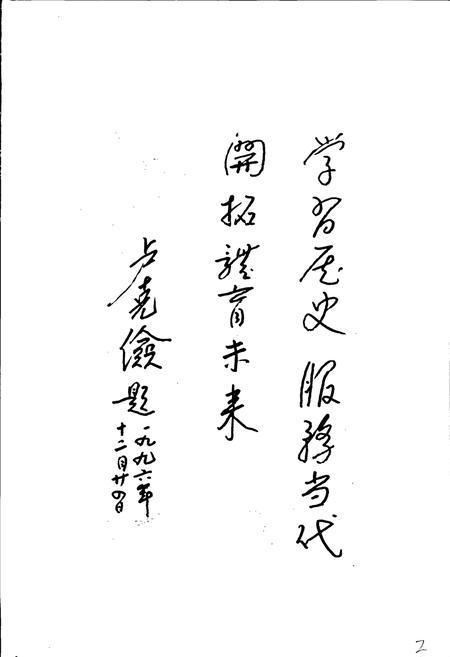 学習历史 服務当代
開拓體育未来
卢尭儉題
一九九六年
十二月廿四日
2